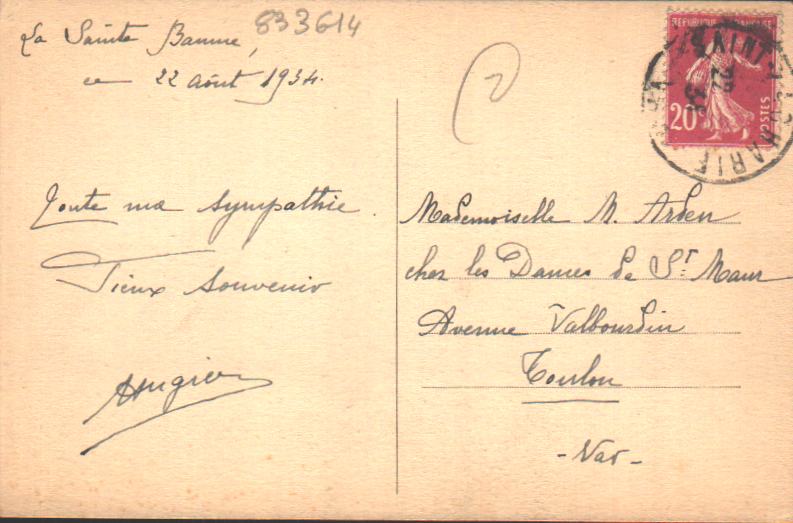 833614
La Sainte Baume,
ce 22 août 1934.
Toute ma sympathie.
Pieux souvenir
RÉPUBLIQUE FRANÇAISE
20c
POSTES
SAINT-ZACHARIE
22
34
VAR
Mademoiselle M. Arden
chez les Dames de St Maur
Avenue Valbourdin
Toulon
-Var-